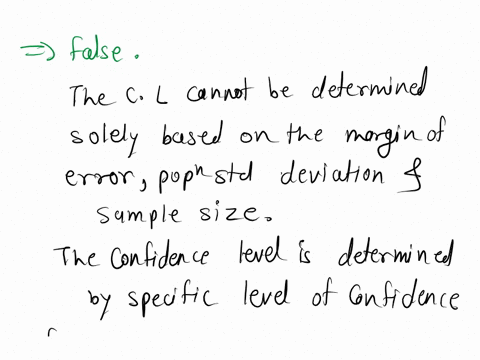 ⇒ false.
The C.L cannot be determined
solely based on the margin of
error, popⁿ std deviation &
sample size.
The Confidence level is determined
by specific level of Confidence